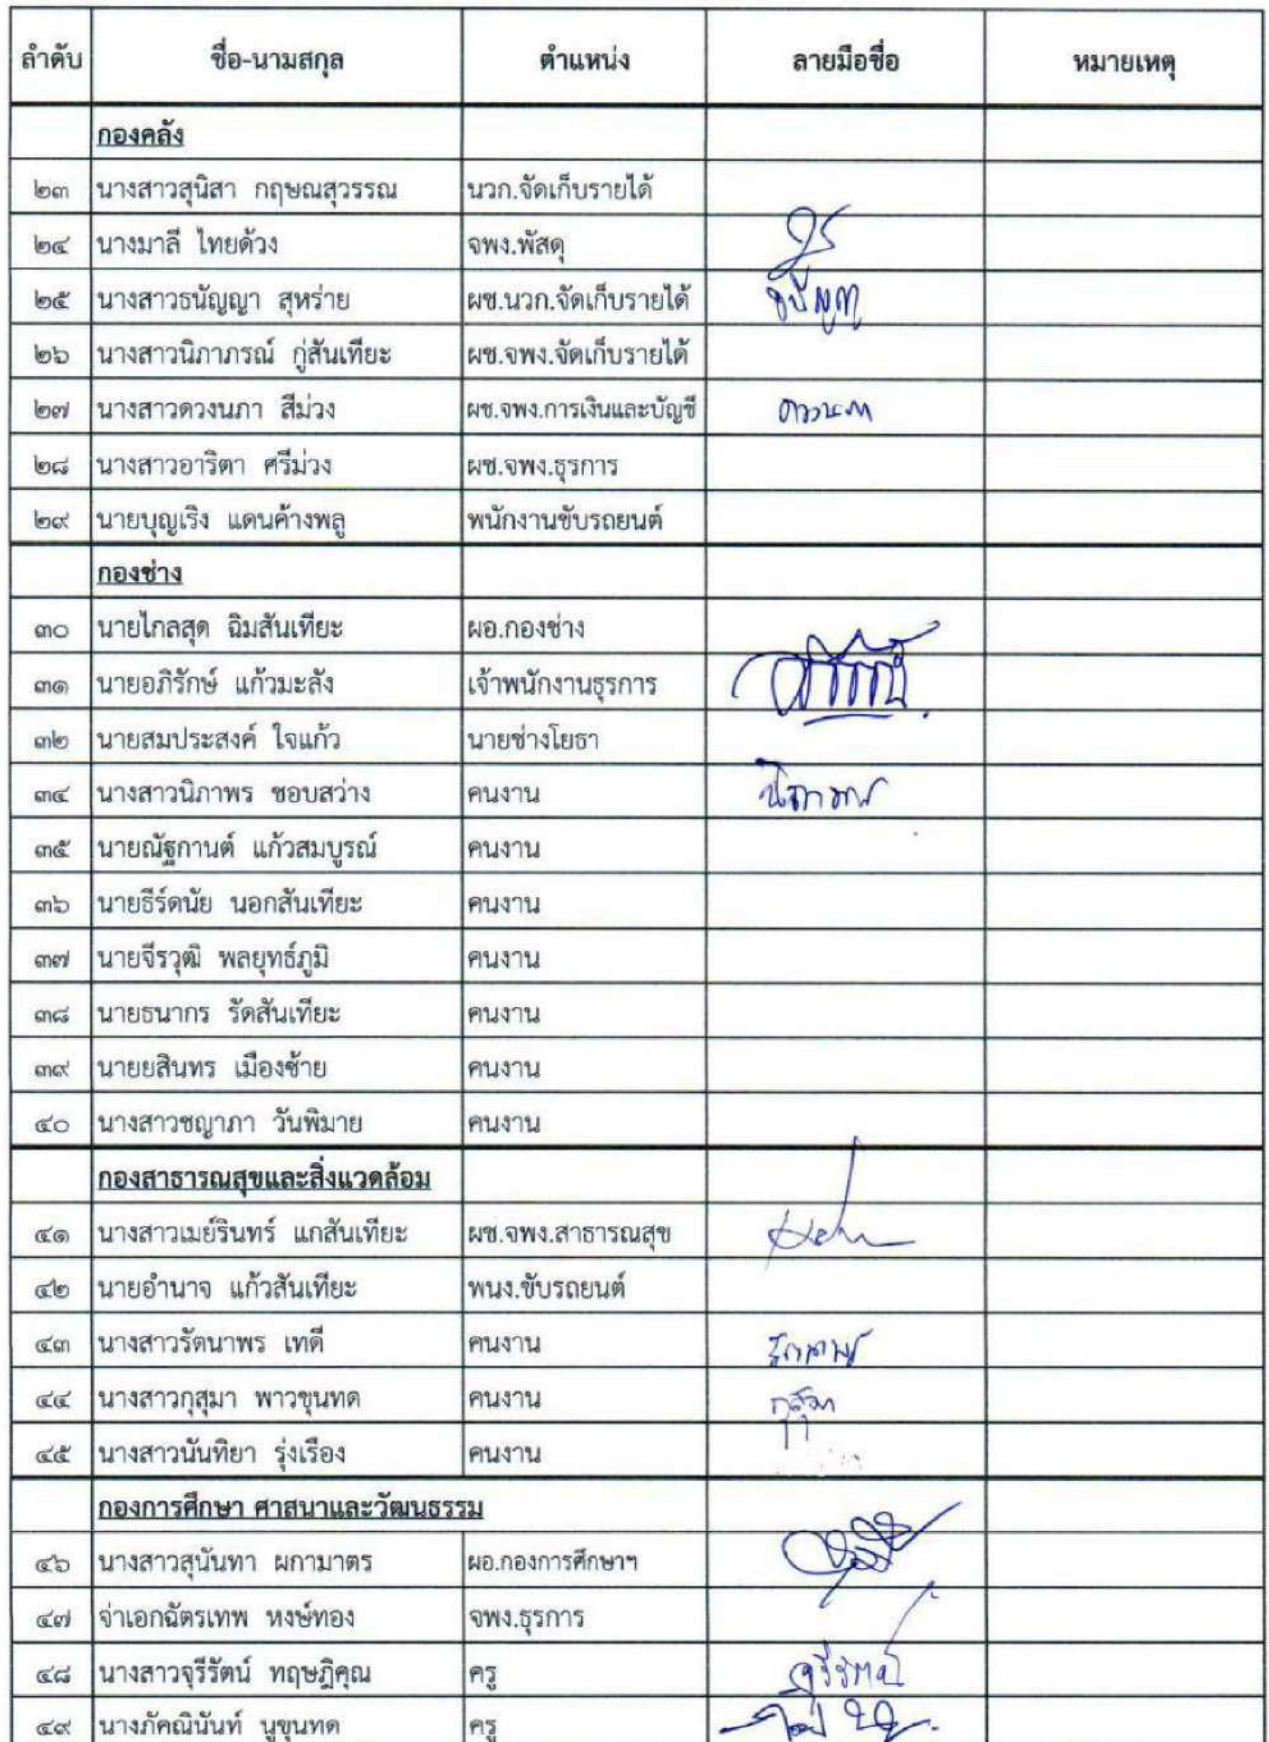 ลำดับ ชื่อ-นามสกุล ตำแหน่ง ลายมือชื่อ หมายเหตุ
กองคลัง
๒๓ นางสาวสุนิสา กฤษณสุวรรณ นวก.จัดเก็บรายได้
๒๔ นางมาลี ไทยด้วง จพง.พัสดุ
๒๕ นางสาวธนัญญา สุหร่าย ผช.นวก.จัดเก็บรายได้
๒๖ นางสาวนิภาภรณ์ กู่สันเทียะ ผช.จพง.จัดเก็บรายได้
๒๗ นางสาวดวงนภา สีม่วง ผช.จพง.การเงินและบัญชี ดวงนภา
๒๘ นางสาวอาริตา ศรีม่วง ผช.จพง.ธุรการ
๒๙ นายบุญเริง แดนค้างพลู พนักงานขับรถยนต์
กองช่าง
๓๐ นายไกลสุด ฉิมสันเทียะ ผอ.กองช่าง
๓๑ นายอภิรักษ์ แก้วมะลัง เจ้าพนักงานธุรการ
๓๒ นายสมประสงค์ ใจแก้ว นายช่างโยธา
๓๔ นางสาวนิภาพร ชอบสว่าง คนงาน นิภาพร
๓๕ นายณัฐกานต์ แก้วสมบูรณ์ คนงาน
๓๖ นายธีร์ดนัย นอกสันเทียะ คนงาน
๓๗ นายจีรวุฒิ พลยุทธ์ภูมิ คนงาน
๓๘ นายธนากร รัดสันเทียะ คนงาน
๓๙ นายยสินทร เมืองซ้าย คนงาน
๔๐ นางสาวชญาภา วันพิมาย คนงาน
กองสาธารณสุขและสิ่งแวดล้อม
๔๑ นางสาวเมย์รินทร์ แกสันเทียะ ผช.จพง.สาธารณสุข
๔๒ นายอำนาจ แก้วสันเทียะ พนง.ขับรถยนต์
๔๓ นางสาวรัตนาพร เทดี คนงาน รัตนาพร
๔๔ นางสาวกุสุมา พาวขุนทด คนงาน กุสุมา
๔๕ นางสาวนันทิยา รุ่งเรือง คนงาน
กองการศึกษา ศาสนาและวัฒนธรรม
๔๖ นางสาวสุนันทา ผกามาตร ผอ.กองการศึกษาฯ
๔๗ จ่าเอกฉัตรเทพ หงษ์ทอง จพง.ธุรการ
๔๘ นางสาวจุรีรัตน์ ทฤษฎิคุณ ครู จุรีรัตน์
๔๙ นางภัคณินันท์ นูขุนทด ครู